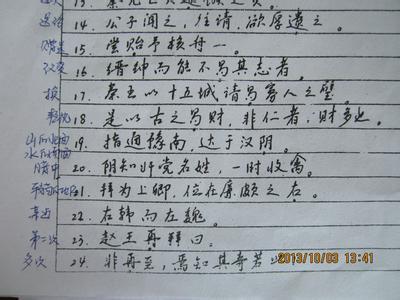 13.
送给 14. 公子闻之，往请，欲厚遗之。
赠送 15. 尝贻予核舟一。
改变 16. 缙绅而能不易其志者。
换 17. 秦王以十五城请易寡人之璧。
轻视 18. 是以古之易财，非仁者，财多也。
山的北面
水的南面 19. 指通豫南，达于汉阴。
暗中 20. 阴知奸党名姓，一时收禽。
21. 拜为上卿，位在廉颇之右。
22. 右韩而左魏。
第二次 23. 赵王再拜曰。
多次 24. 非再至，焉知其奇若
2013/10/03 13:41